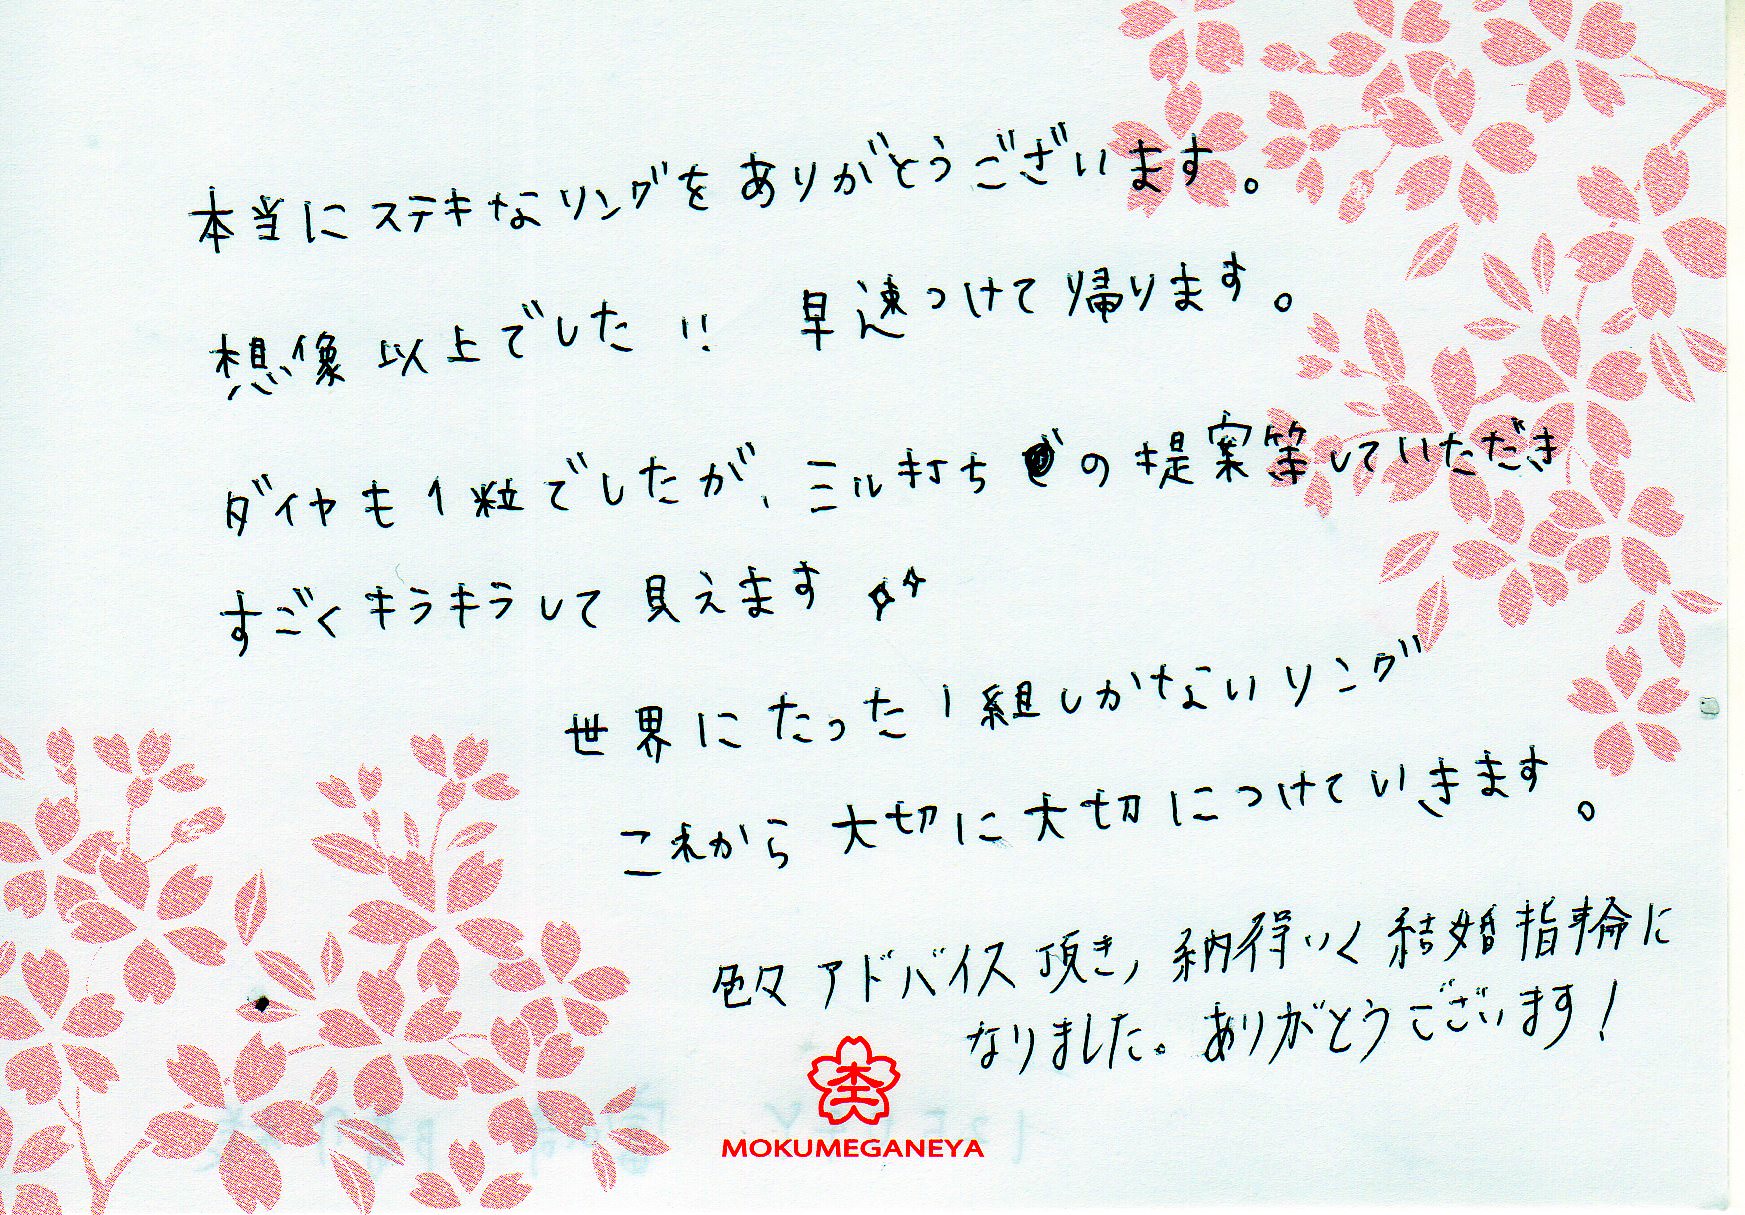 本当にステキなリングをありがとうございます。
想像以上でした!! 早速つけて帰ります。
ダイヤも1粒でしたが、ミル打ちの提案等していただき
すごくキラキラして見えます
世界にたった1組しかないリング
これから大切に大切につけていきます。
色々アドバイス頂き、納得いく結婚指輪に
なりました。ありがとうございます!
MOKUMEGANEYA